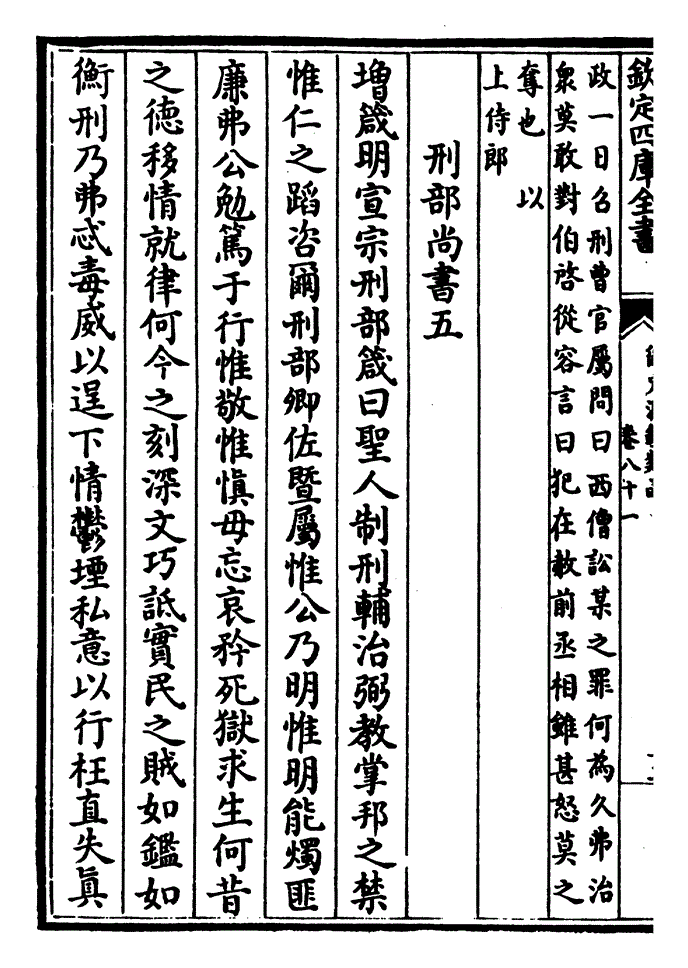 欽定四庫全書
卷八十一
政一日召刑曹官屬問曰西僧訟某之罪何為久弗治
衆莫敢對伯啓從容言曰犯在赦前丞相雖甚怒莫之
奪也 以
上侍郎
刑部尚書五
増箴明宣宗刑部箴曰聖人制刑輔治弼教掌邦之禁
惟仁之蹈咨爾刑部卿佐暨屬惟公乃明惟明能燭匪
廉弗公勉篤于行惟敬惟慎毋忘哀矜死獄求生何昔
之德移情就律何今之刻深文巧詆實民之賊如鑑如
衡刑乃弗忒毒威以逞下情鬱堙私意以行枉直失真